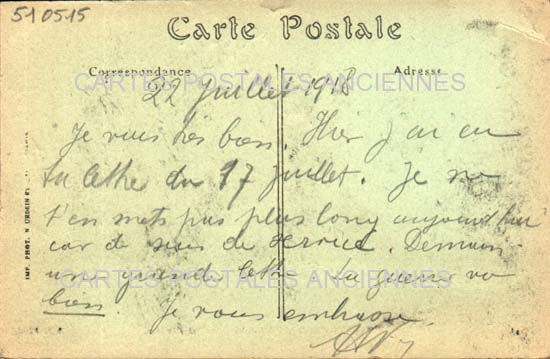 510515
Carte Postale
Correspondance Adresse
CARTES POSTALES ANCIENNES
22 Juillet 1918
Je vais très bien. Hier j'ai eu
ta lettre du 17 Juillet. Je ne
t'en mets pas plus long aujourd'hui
car je suis de service. Demain
une grande lettre. La guerre va
bon. Je vous embrasse
CARTES POSTALES ANCIENNES
IMP. PHOT.